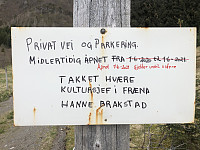 PRIVAT VEI OG PARKERING.
MIDLERTIDIG ÅPNET FRA 1-6-2020 TIL 1-6-2021
Åpnet 1-6-2021
TAKKET HVÆRE
KULTURSJEF I FRÆNA
HANNE BRAKSTAD